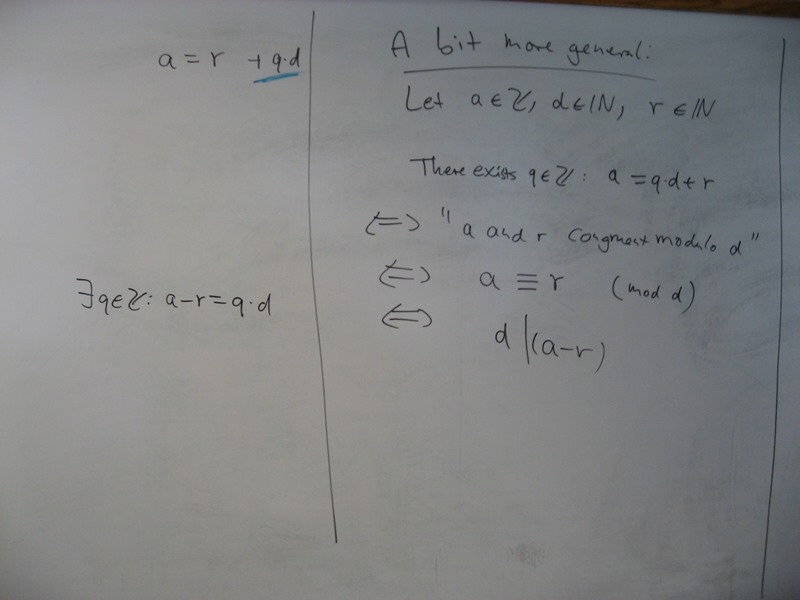 a = r + q·d
∃q∈ℤ: a-r = q·d
A bit more general:
Let a∈ℤ, d∈ℕ, r∈ℕ
There exists q∈ℤ: a = q·d+r
⇔ "a and r congruent modulo d"
⇔ a ≡ r (mod d)
⇔ d|(a-r)